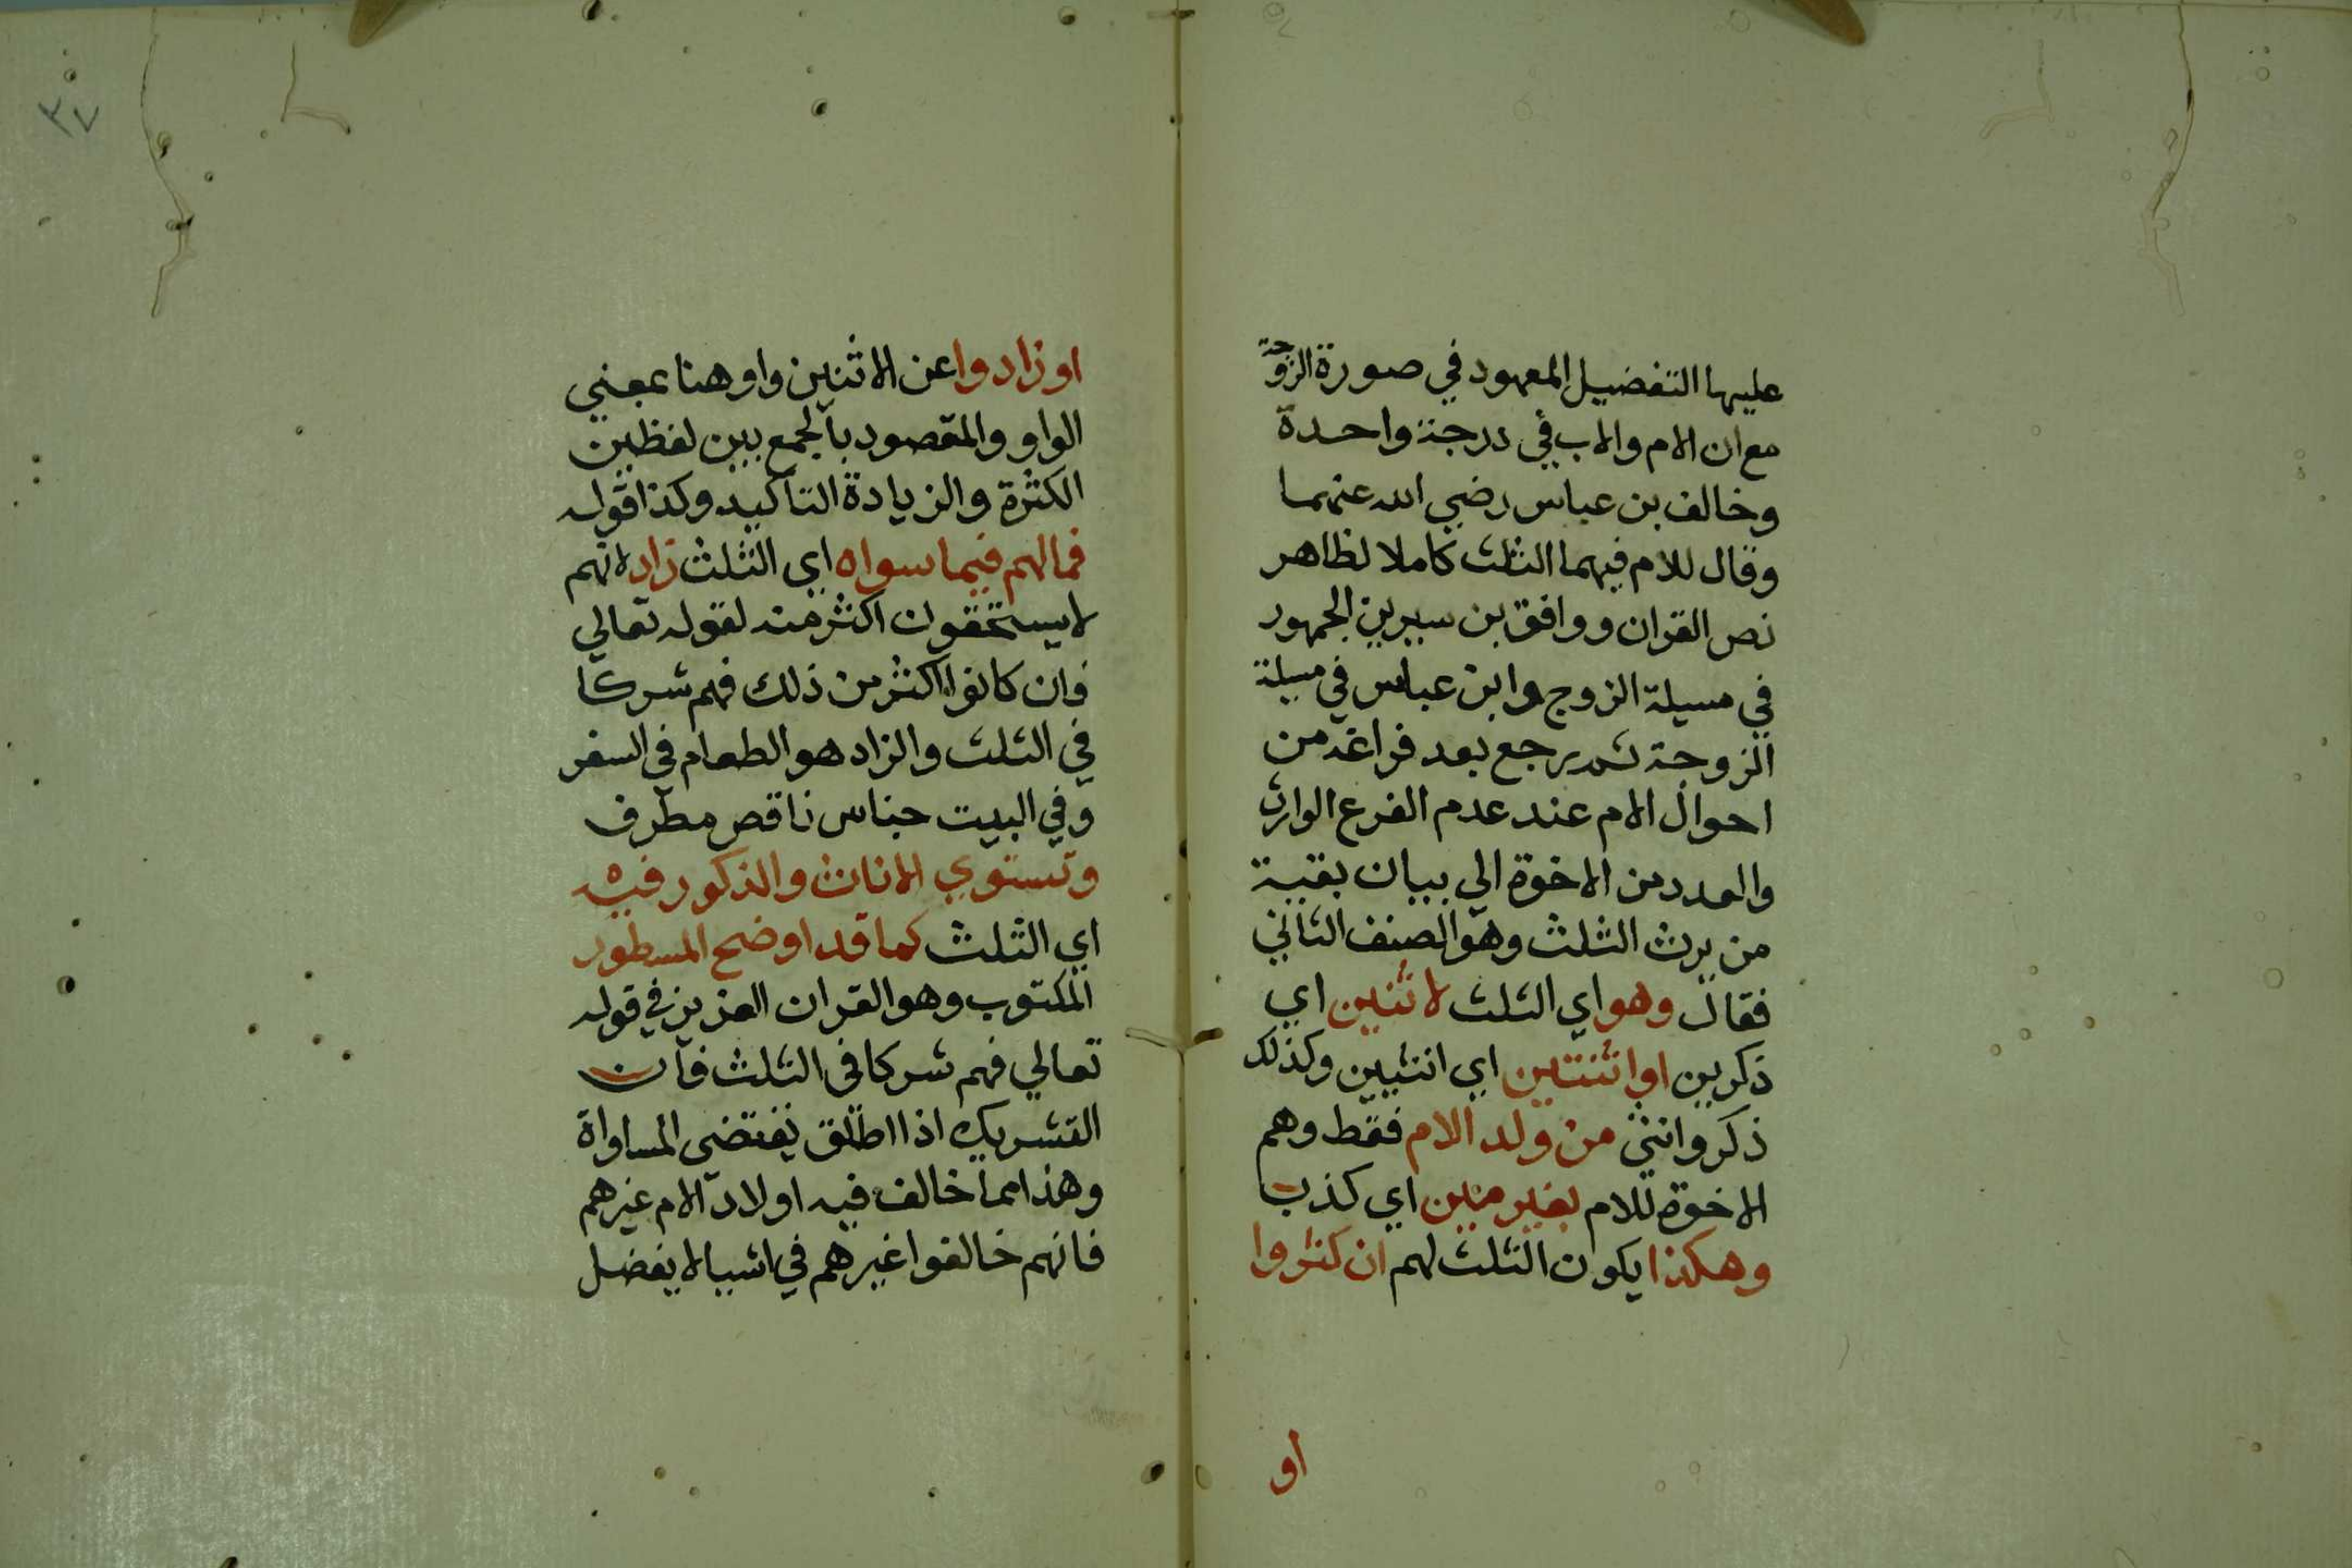 عليها التفضيل المعهود في صورة الزوجة
مع ان الام والاب في درجة واحدة
وخالف بن عباس رضي الله عنهما
وقال للام فيهما الثلث كاملا لظاهر
نص القران ووافق بن سيرين الجمهور
في مسيلة الزوج وابن عباس في مسيلة
الزوجة ثم يرجع بعد فراغه من
احوال الام عند عدم الفرع الوارث
والعدد من الاخوة الي بيان بقية
من يرث الثلث وهو الصنف الثاني
فقال وهو اي الثلث لاثنين اي
ذكرين او اثنتين اي انثيين وكذلك
ذكر وانثي من ولد الام فقط وهم
الاخوة للام بغير مين اي كذب
وهكذا يكون الثلث لهم ان كثروا
او
٣٧
او زادوا عن الاثنين واو هنا بمعني
الواو والمقصود بالجمع بين لفظين
الكثرة والزيادة التاكيد وكذا قوله
فمالهم فيما سواه اي الثلث زاد لانهم
لا يستحقون اكثر منه لقوله تعالي
فان كانوا اكثر من ذلك فهم شركا
في الثلث والزاد هو الطعام في السفر
وفي البيت جناس ناقص مطرف
وتستوي الاناث والذكور فيه
اي الثلث كما قد اوضح المسطور
المكتوب وهو القران العزيز في قوله
تعالي فهم شركا في الثلث فان
التشريك اذا اطلق يقتضي المساواة
وهذا مما خالف فيه اولاد الام غيرهم
فانهم خالفوا غيرهم في اشيا لا يفضل